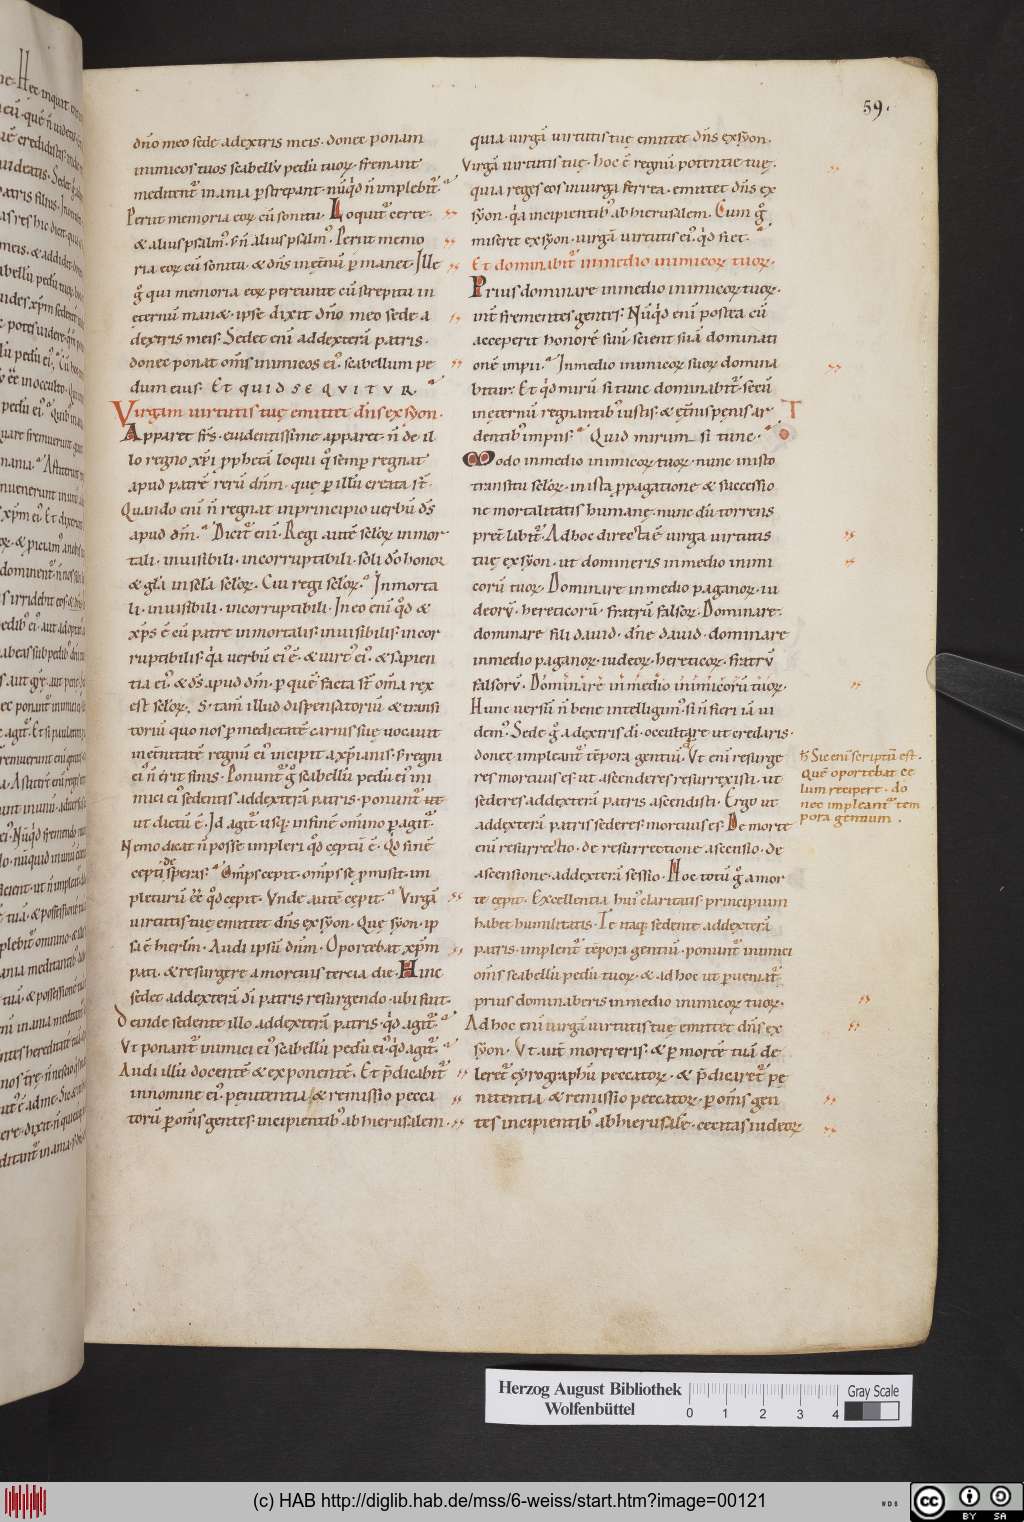 59.
dn̄o meo sede a dextris meis. donec ponam
inimicos tuos scabellū pedū tuoꝝ. fremant
meditent᷑ inania ꝑstrepant. nūqd n̄ implebit᷑.
Periit memoria eoꝝ cū sonitu. Loquit᷑ certe.
& alius psalm᷒. s; n̄ alius psalm᷒. Periit memo
ria eoꝝ cū sonitu. & dn̄s in et̄nū ꝑmanet. Ille
g̊ qui memoria eoꝝ pereunte cū strepitu in
eternū manet. ipse dixit dn̄o meo sede a
dextris meis. Sedet enī ad dexterā patris.
donec ponat om̄s inimicos ei᷒. scabellum pe
dum eius. Et QUID SEQVITVR.
Virgam uirtutis tuę emittet dn̄s ex syon.
Apparet frs̄. euidentissime apparet. n̄ de il
lo regno xp̄i ꝓphetā loqui q̊ semꝑ regnat
apud patrē rerū dn̄m. que ꝑ illū creata st̄.
Quando enī n̄ regnat in principio uerbū ds̄
apud dm̄. Dicit᷑ enī. Regi autē scl̄oꝝ inmor
tali. inuisibili. incorruptibili. soli dō honor
& gl̄a in scl̄a scl̄oꝝ. Cui regi scl̄oꝝ. Inmorta
li. inuisibili. incorruptibili. In eo enī qd̊ &
xp̄s ē cū patre inmortalis. inuisibilis. incor
ruptibilis. q̓a uerbū ei᷒ ē. & uirt᷒ ei᷒. & sapien
tia ei᷒. & ds̄ apud dm̄. ꝑ quē facta st̄ om̄a rex
est scl̄oꝝ. S; tam̄ illud dispensatoriū & transi
toriū quo nos ꝑ medietatē carnis suę uocauit
in et̄nitatē regnū ei᷒ incipit a xp̄ianis. s; regni
ei᷒ n̄ erit finis. Ponunt᷑ g̊ scabellū pedū ei᷒ ini
mici ei᷒ sedentis ad dexterā patris. ponunt᷑ ut
ut dictū ē. Id agit᷑ usq; in finē om̄ino ꝑagit᷑.
Nemo dicat n̄ posse impleri qd̊ ceptū ē. Qd̊ finē
cepti desperas. Om̄ps cepit. om̄ps se ꝓmisit im
pleturū eē qd̊ cepit. Vnde autē cepit. Virgā
uirtutis tuę emittet dn̄s ex syon. Que syon. ip
sa ē hierlm̄. Audi ipsū dn̄m. Oportebat xp̄m
pati. & resurgere a mortuis tercia die. Hinc
sedet ad dexterā dī patris resurgendo. ubi fuit.
Deinde sedente illo ad dexterā patris. qd̊ agit᷑.
Vt ponant᷑ inimici ei᷒ scabellū pedū ei᷒. qd̊ agit᷑.
Audi illū docentē & exponentē. Et p̄dicabit᷑
in nomine ei᷒. penitentia & remissio pecca
torū ꝑ om̄s gentes. incipientib᷒ ab hierusalem.
quia uirgā uirtutis tuę emittet dn̄s ex syon.
Virgā uirtutis tuę. hoc ē regnū potentię tuę.
quia reges eos in uirga ferrea. emittet dn̄s ex
syon. q̓a incipientib᷒ ab hierusalem. Cum g̊
miseret ex syon. uirgā uirtutis ei᷒. qd̊ fiet.
Et dominabit᷑ in medio inimicoꝝ tuoꝝ.
Prius dominare in medio inimicoꝝ tuoꝝ.
int̄ frementes gentes. Nūqd̊ enī postea cū
acceperit honorē suū scient suā dominati
onē impii. In medio inimicoꝝ suoꝝ domina
bitur. Et qd̊ mirū si tunc dominabit᷑. secū
in eternū regnantib᷒ iustis. & et̄nis pęnis ar
dentib᷒ impiis. Quid mirum si tunc.
Modo in medio inimicoꝝ tuoꝝ. nunc in isto
transitu scl̄oꝝ. in ista ꝓpagatione & successio
ne mortalitatis humanę. nunc dū torrens
pret̄ labit᷑. Ad hoc directa ē uirga uirtutis
tuę ex syon. ut domineris in medio inimi
corū tuoꝝ. Dominare in medio paganoꝝ. iu
deorū. hereticorū. fratrū falsoꝝ. Dominare.
dominare fili dauid. dn̄e dauid. dominare
in medio paganoꝝ. iudeoꝝ. hereticoꝝ. fratrū
falsorū. Dominare in medio inimicorū tuoꝝ.
Hunc uersū n̄ bene intelligim᷒. si n̄ fieri iā ui
dem᷒. Sede g̊ a dextris dī. occultare ut credaris.
donec impleant᷑ tēpora gentiū. Vt enī resurge
res mortuus es. ut ascenderes resurrexisti. ut
sederes ad dexterā patris ascendisti. Ergo ut
ad dexterā patris sederes. mortuus es. De morte
enī resurrectio. de resurrectione ascensio. de
ascensione. ad dexterā sessio. Hoc totū g̊ a mor
te cępit. Excellentia hui᷒ claritatis principium
habet humilitatis. Te itaq; sedente ad dexterā
patris. implent᷑ tēpora gentiū. ponunt᷑ inimici
om̄s scabellū pedū tuoꝝ. & ad hoc ut ꝑueniat᷑.
prius dominaberis in medio inimicoꝝ tuoꝝ.
Ad hoc enī uirgā uirtutis tuę emittet dn̄s ex
syon. Vt aut̄ morereris. & ꝑ mortē tuā de
leret᷑ cyrographū peccatoꝝ. & p̄dicaret᷑ pę
nitentia & remissio peccatoꝝ. ꝑ om̄s gen
tes incipientib᷒ ab hierusalē. cecitas iudeoꝝ
Sic enī scriptū est.
Quē oportebat ce
lum recipere. do
nec impleant᷑ tem
pora gentium.
Herzog August Bibliothek
Wolfenbüttel
Gray Scale
0 1 2 3 4
(c) HAB http://diglib.hab.de/mss/6-weiss/start.htm?image=00121
WDB
cc BY SA